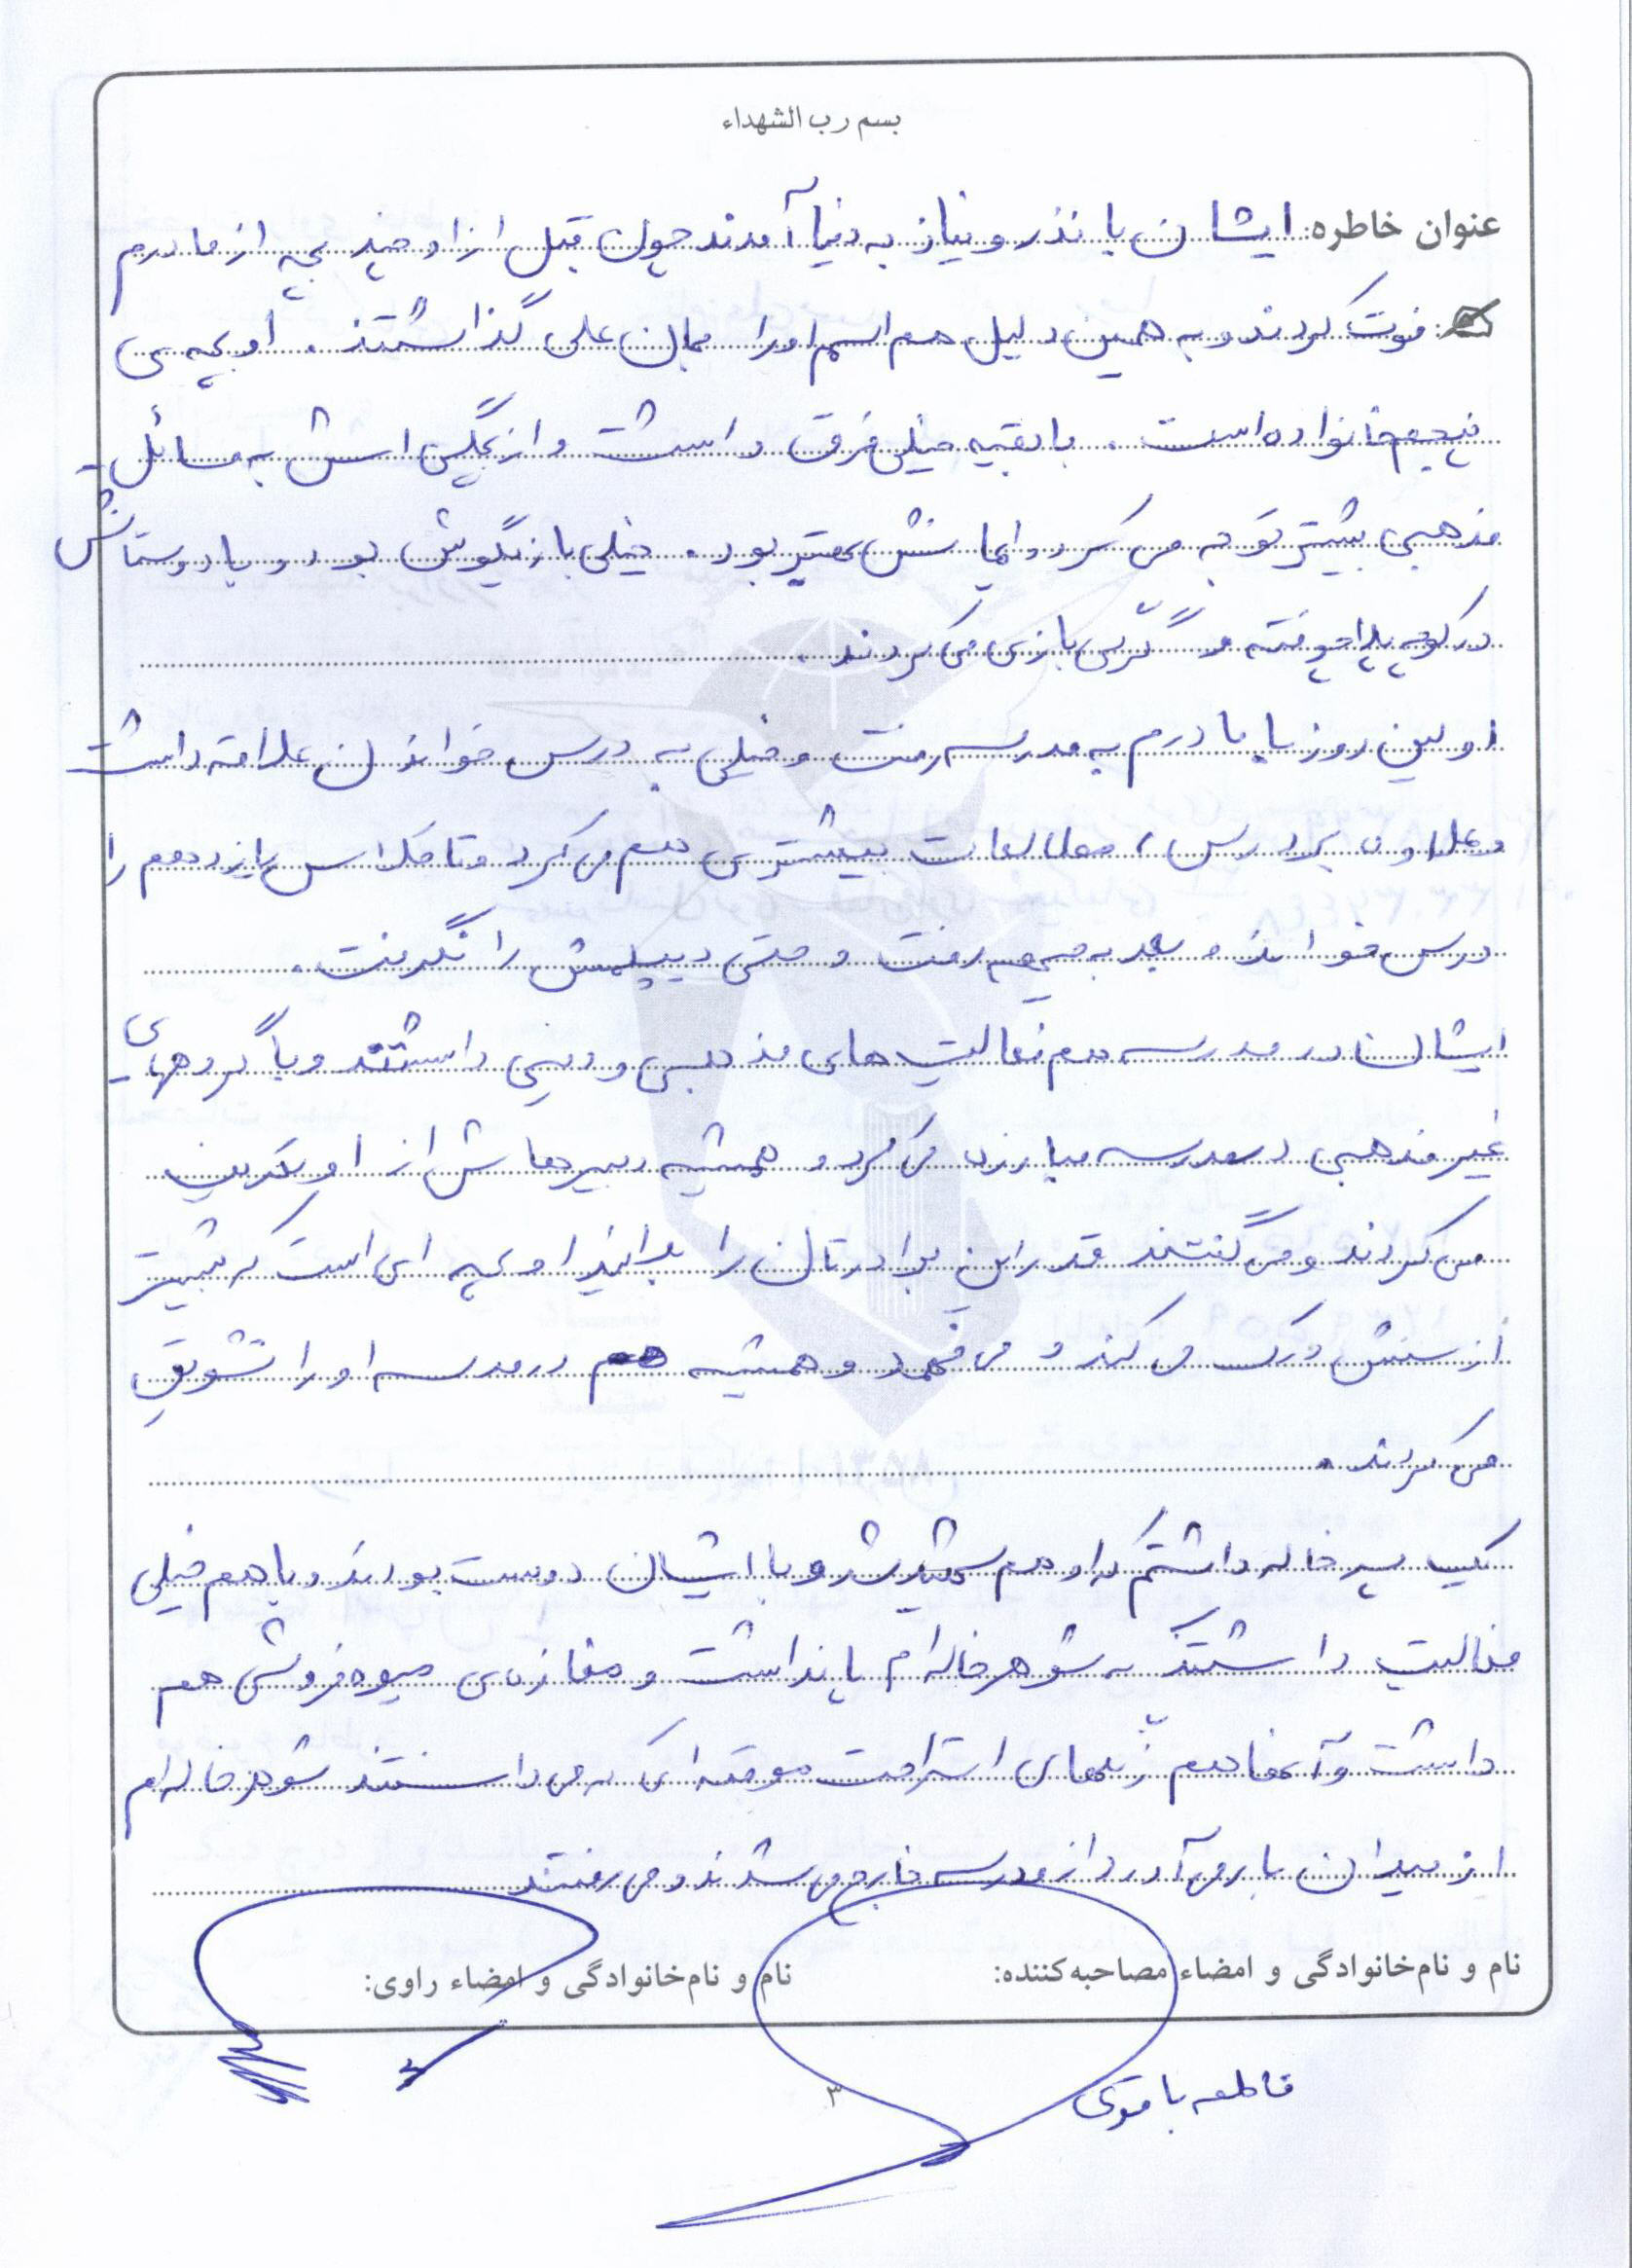 بسم رب الشهداء
عنوان خاطره: ایشان با نذر و نیاز به دنیا آمدند چون قبل از او چند بچه از مادرم
فوت کردند و به همین دلیل هم اسم او را جان علی گذاشتند. او بچه ی
پنجم خانواده است. با بقیه خیلی فرق داشت و از بچگی اش به مسائل
مذهبی بیشتر توجه می کرد و ایمانش بهتر بود. خیلی بازیگوش بود و با دوستانش
در کوچه پلاچوفته و گُرّی بازی می کردند.
اولین روز با مادرم به مدرسه رفت و خیلی به درس خواندن علاقه داشت
و علاوه بر درس، مطالعات بیشتری هم می کرد و تا کلاس یازدهم را
درس خواند و بعد به جبهه رفت و حتی دیپلمش را نگرفت.
ایشان در مدرسه هم فعالیت های مذهبی و دینی داشتند و با گروههای
غیر مذهبی در مدرسه مبارزه می کرد و همیشه دبیرهایش از او تعریف
می کردند و می گفتند قدر این برادرتان را بدانید او بچه ای است که بیشتر
از سنش درک می کند و می فهمد و همیشه هم در مدرسه او را تشویق
می کردند.
یک پسر خاله داشتم که او هم شهید شد و با ایشان دوست بودند و با هم خیلی
فعالیت داشتند که شوهر خاله ام پا نداشت و مغازه ی میوه فروشی هم
داشت و آنها هم زنگهای استراحت موقعه ای که می دانستند شوهر خاله ام
از میدان بار می آورد از مدرسه خارج می شدند و می رفتند
نام و نام‌خانوادگی و امضاء مصاحبه‌کننده: نام و نام‌خانوادگی و امضاء راوی:
فاطمه
۳